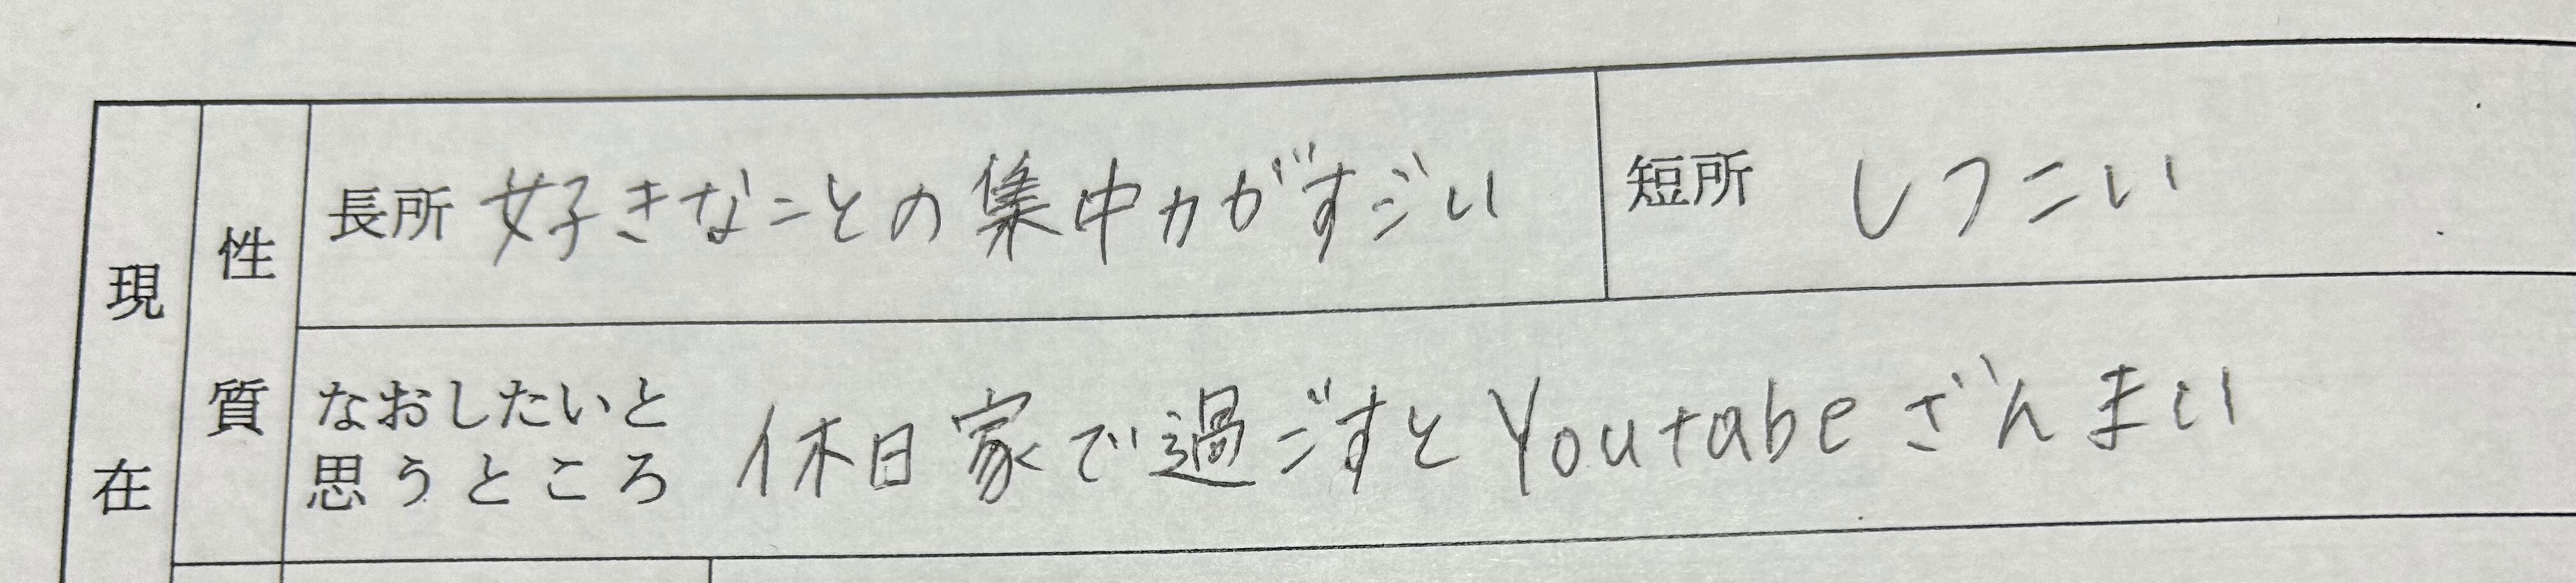 現在
性質
長所 好きなことの集中力がすごい
短所 しつこい
なおしたいと
思うところ
休日家で過ごすとYoutabeざんまい